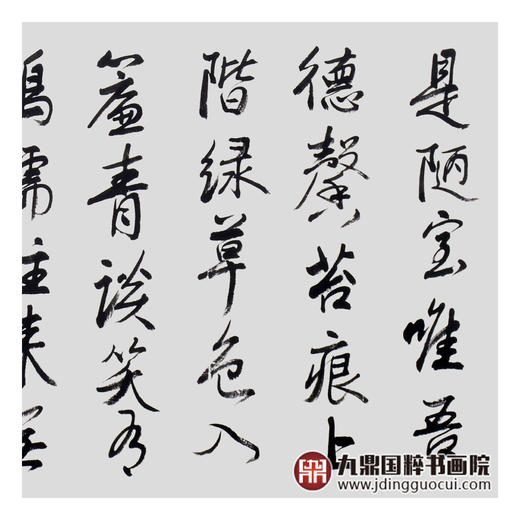 是陋室唯吾
德馨苔痕上
阶绿草色入
帘青谈笑有
鸿儒往来无
九鼎国粹书画院
www.jdingguocui.com